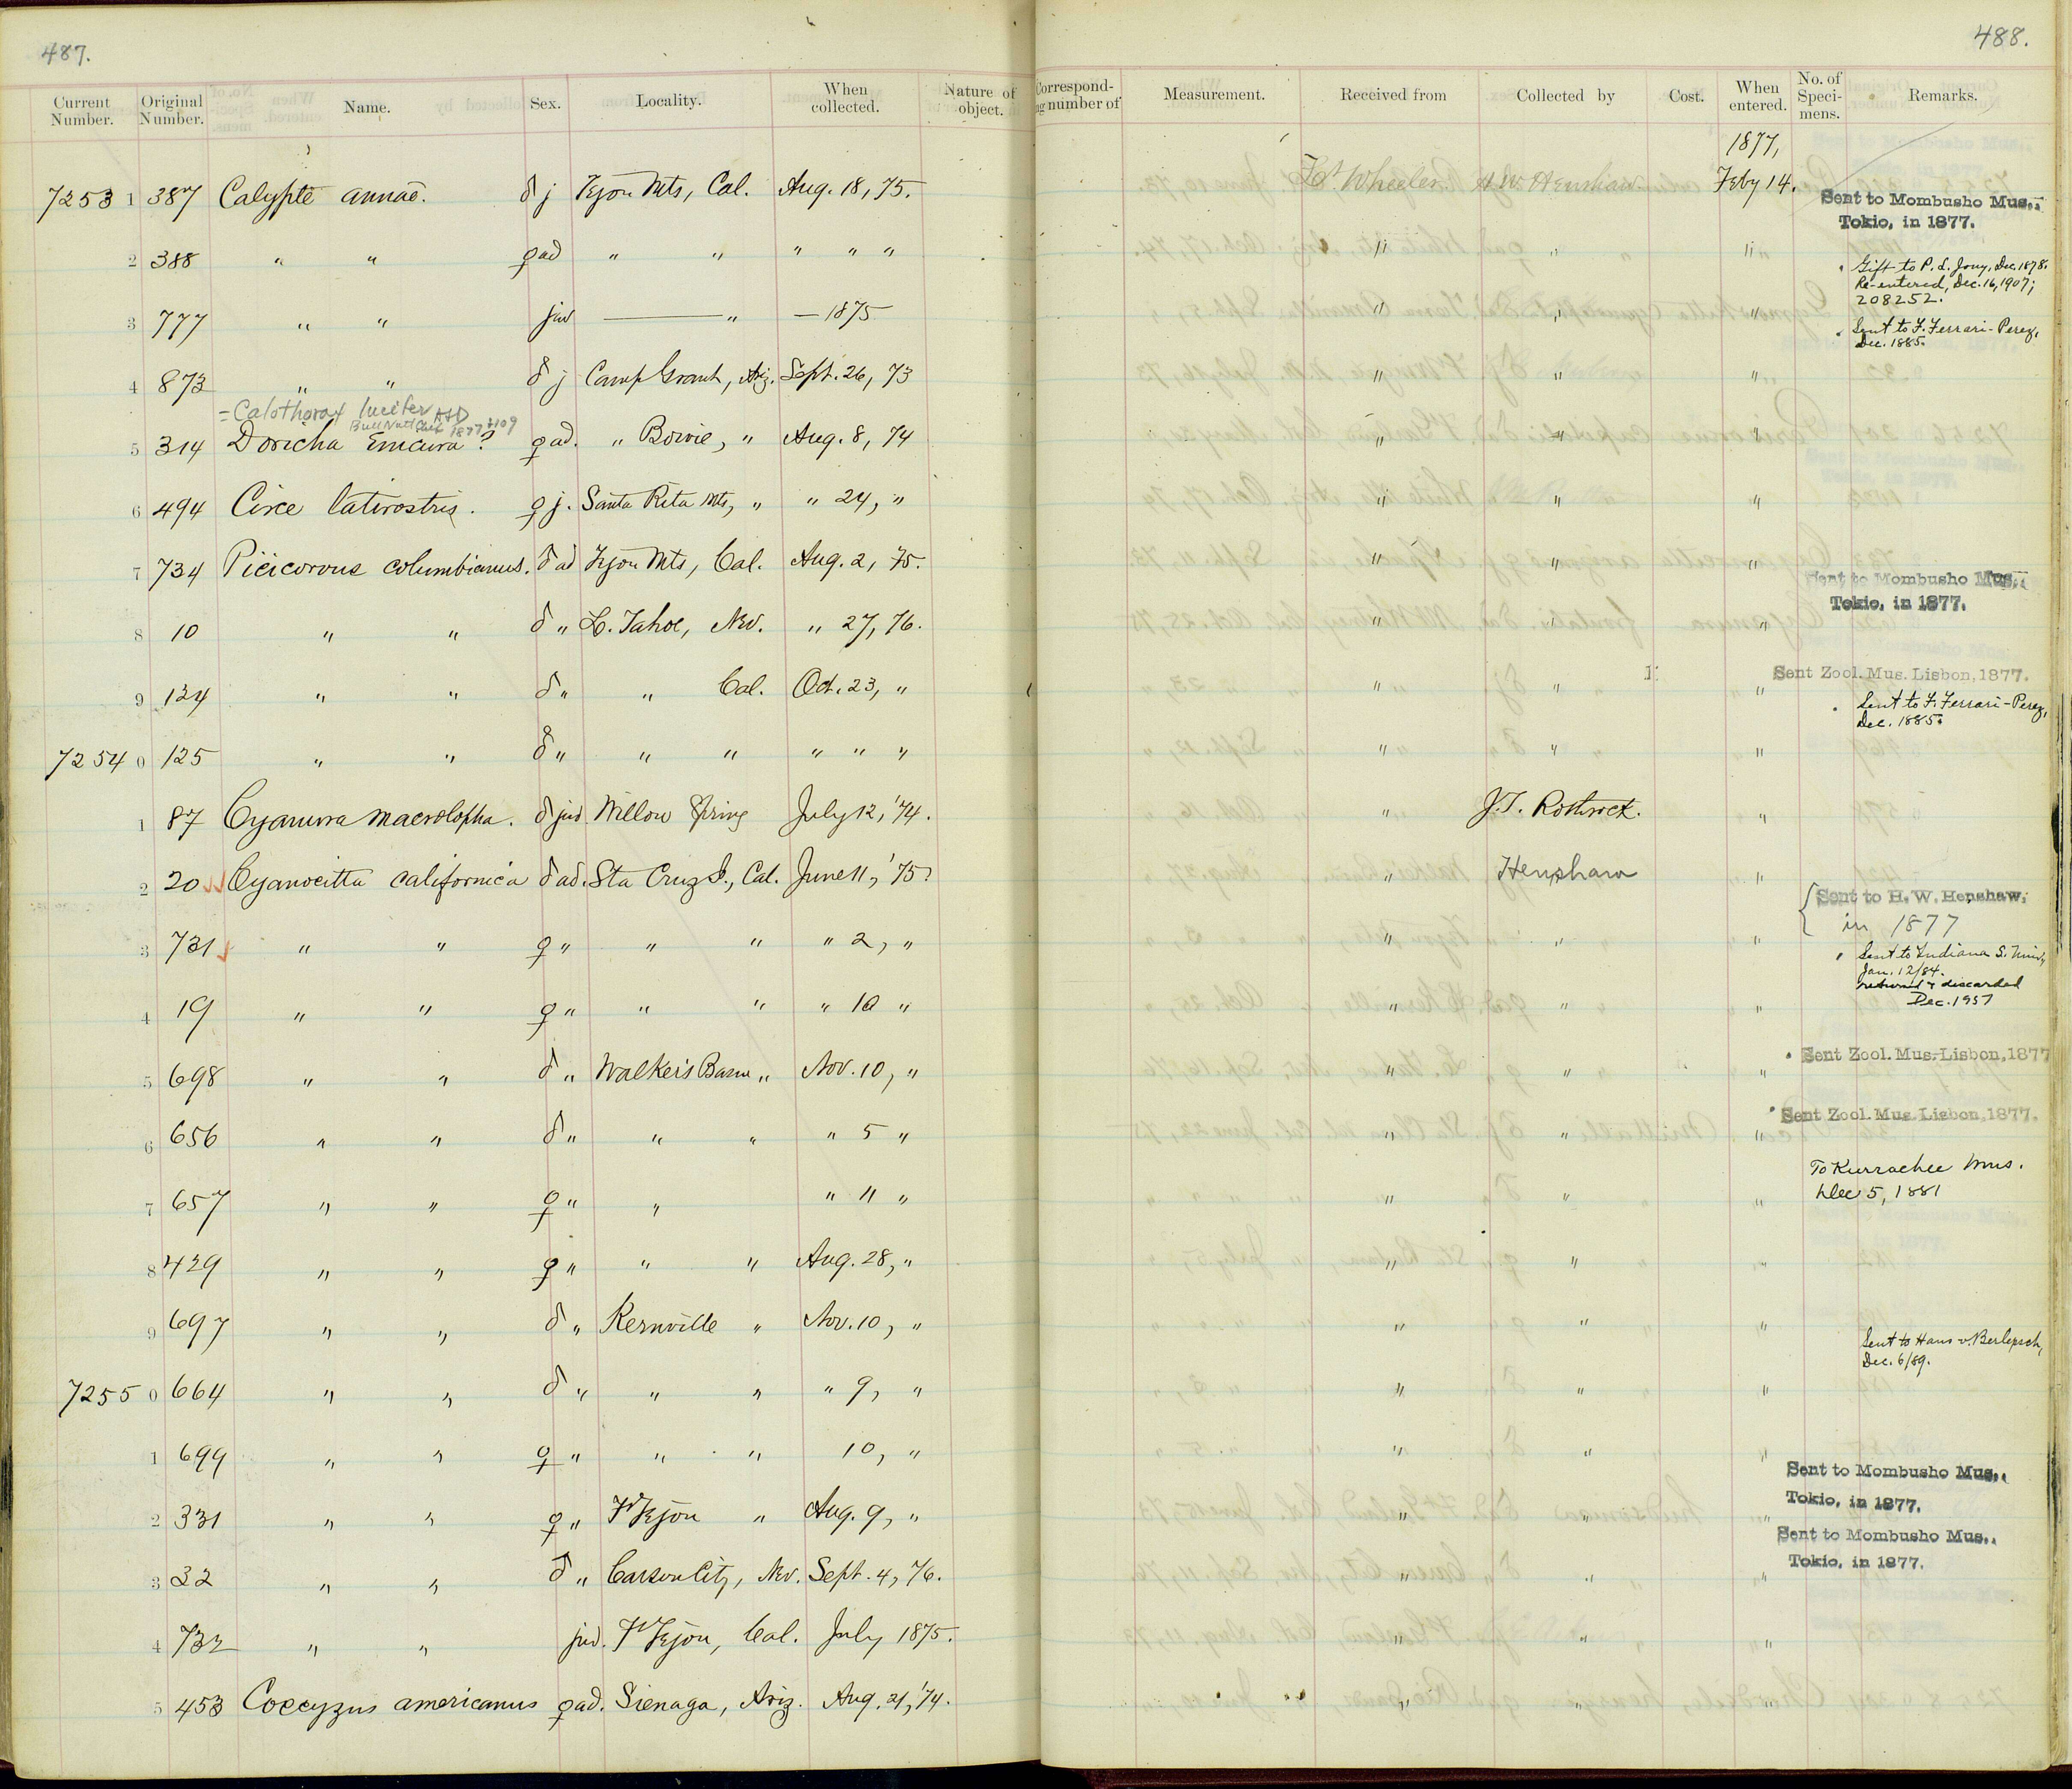 487.
488.
Current Number. Original Number. Name. Sex. Locality. When collected. Nature of object. Correspond-ng number of Measurement. Received from Collected by Cost. When entered. No. of Speci-mens. Remarks.
1877,
7253 1 387 Calypte annae. ♂ j Tejon Mts, Cal. Aug. 18, 75. Lt Wheeler. H. W. Henshaw. Feby 14. Sent to Mombusho Mus., Tokio, in 1877.
2 388 " " ♀ ad " " " " " " " "
Gift to P. L. Jouy, Dec. 1878.
Re-entered, Dec. 16, 1907;
208252.
3 777 " " juv — " — 1875 " " "
Sent to F. Ferrari-Perez,
Dec. 1885.
4 873 " " ♂ j Camp Grant, Ariz. Sept. 26, 73 " " "
= Calothorax lucifer
Bull Nutt Club 1877 p 109
5 314 Doricha Enicura? ♀ ad. " Bowie, " Aug. 8, 74 " " "
6 494 Circe latirostris. ♀ j. Santa Rita Mts, " " 24, " " " "
7 734 Picicorvus columbianus. ♂ ad Tejon Mts, Cal. Aug. 2, 75. " " " Sent to Mombusho Mus., Tokio, in 1877.
8 10 " " ♂ " L. Tahoe, Nev. " 27, 76. " " "
9 124 " " ♂ " " Cal. Oct. 23, " " " " Sent Zool. Mus. Lisbon, 1877.
Sent to F. Ferrari-Perez,
Dec. 1885.
7254 0 125 " " ♂ " " " " " " " " "
1 87 Cyanura macrolopha. ♂ juv Willow Spring July 12, '74. " J. T. Rothrock. "
2 20 Cyanocitta californica ♂ ad. Sta Cruz I., Cal. June 11, '75. " Henshaw "
Sent to H. W. Henshaw.
in 1877
3 731 " " ♀ " " " " 2, " " " "
Sent to Indiana S. Univ,
Jan. 12/84.
returned & discarded
Dec. 1957
4 19 " " ♀ " " " " 10 " " " "
5 698 " " ♂ " Walker's Basin " Nov. 10, " " " " Sent Zool. Mus. Lisbon, 1877
6 656 " " ♂ " " " " 5 " " " " Sent Zool. Mus Lisbon, 1877.
7 657 " " ♀ " " " 11 " " " "
To Kurrachee Mus.
Dec 5, 1881
8 429 " " ♀ " " " Aug. 28, " " " "
9 697 " " ♂ " Kernville " Nov. 10, " " " "
Sent to Hans v. Berlepsch,
Dec. 6/89.
7255 0 664 " " ♂ " " " " 9, " " " "
1 699 " " ♀ " " " 10, " " " "
2 331 " " ♀ " Ft Tejon " Aug. 9, " " " " Sent to Mombusho Mus., Tokio, in 1877.
3 32 " " ♂ " Carson City, Nev. Sept. 4, 76. " " " Sent to Mombusho Mus., Tokio, in 1877.
4 732 " " juv. Ft Tejon, Cal. July 1875. " " "
5 453 Coccyzus americanus ♀ ad. Sienaga, Ariz. Aug. 21, '74. " " "